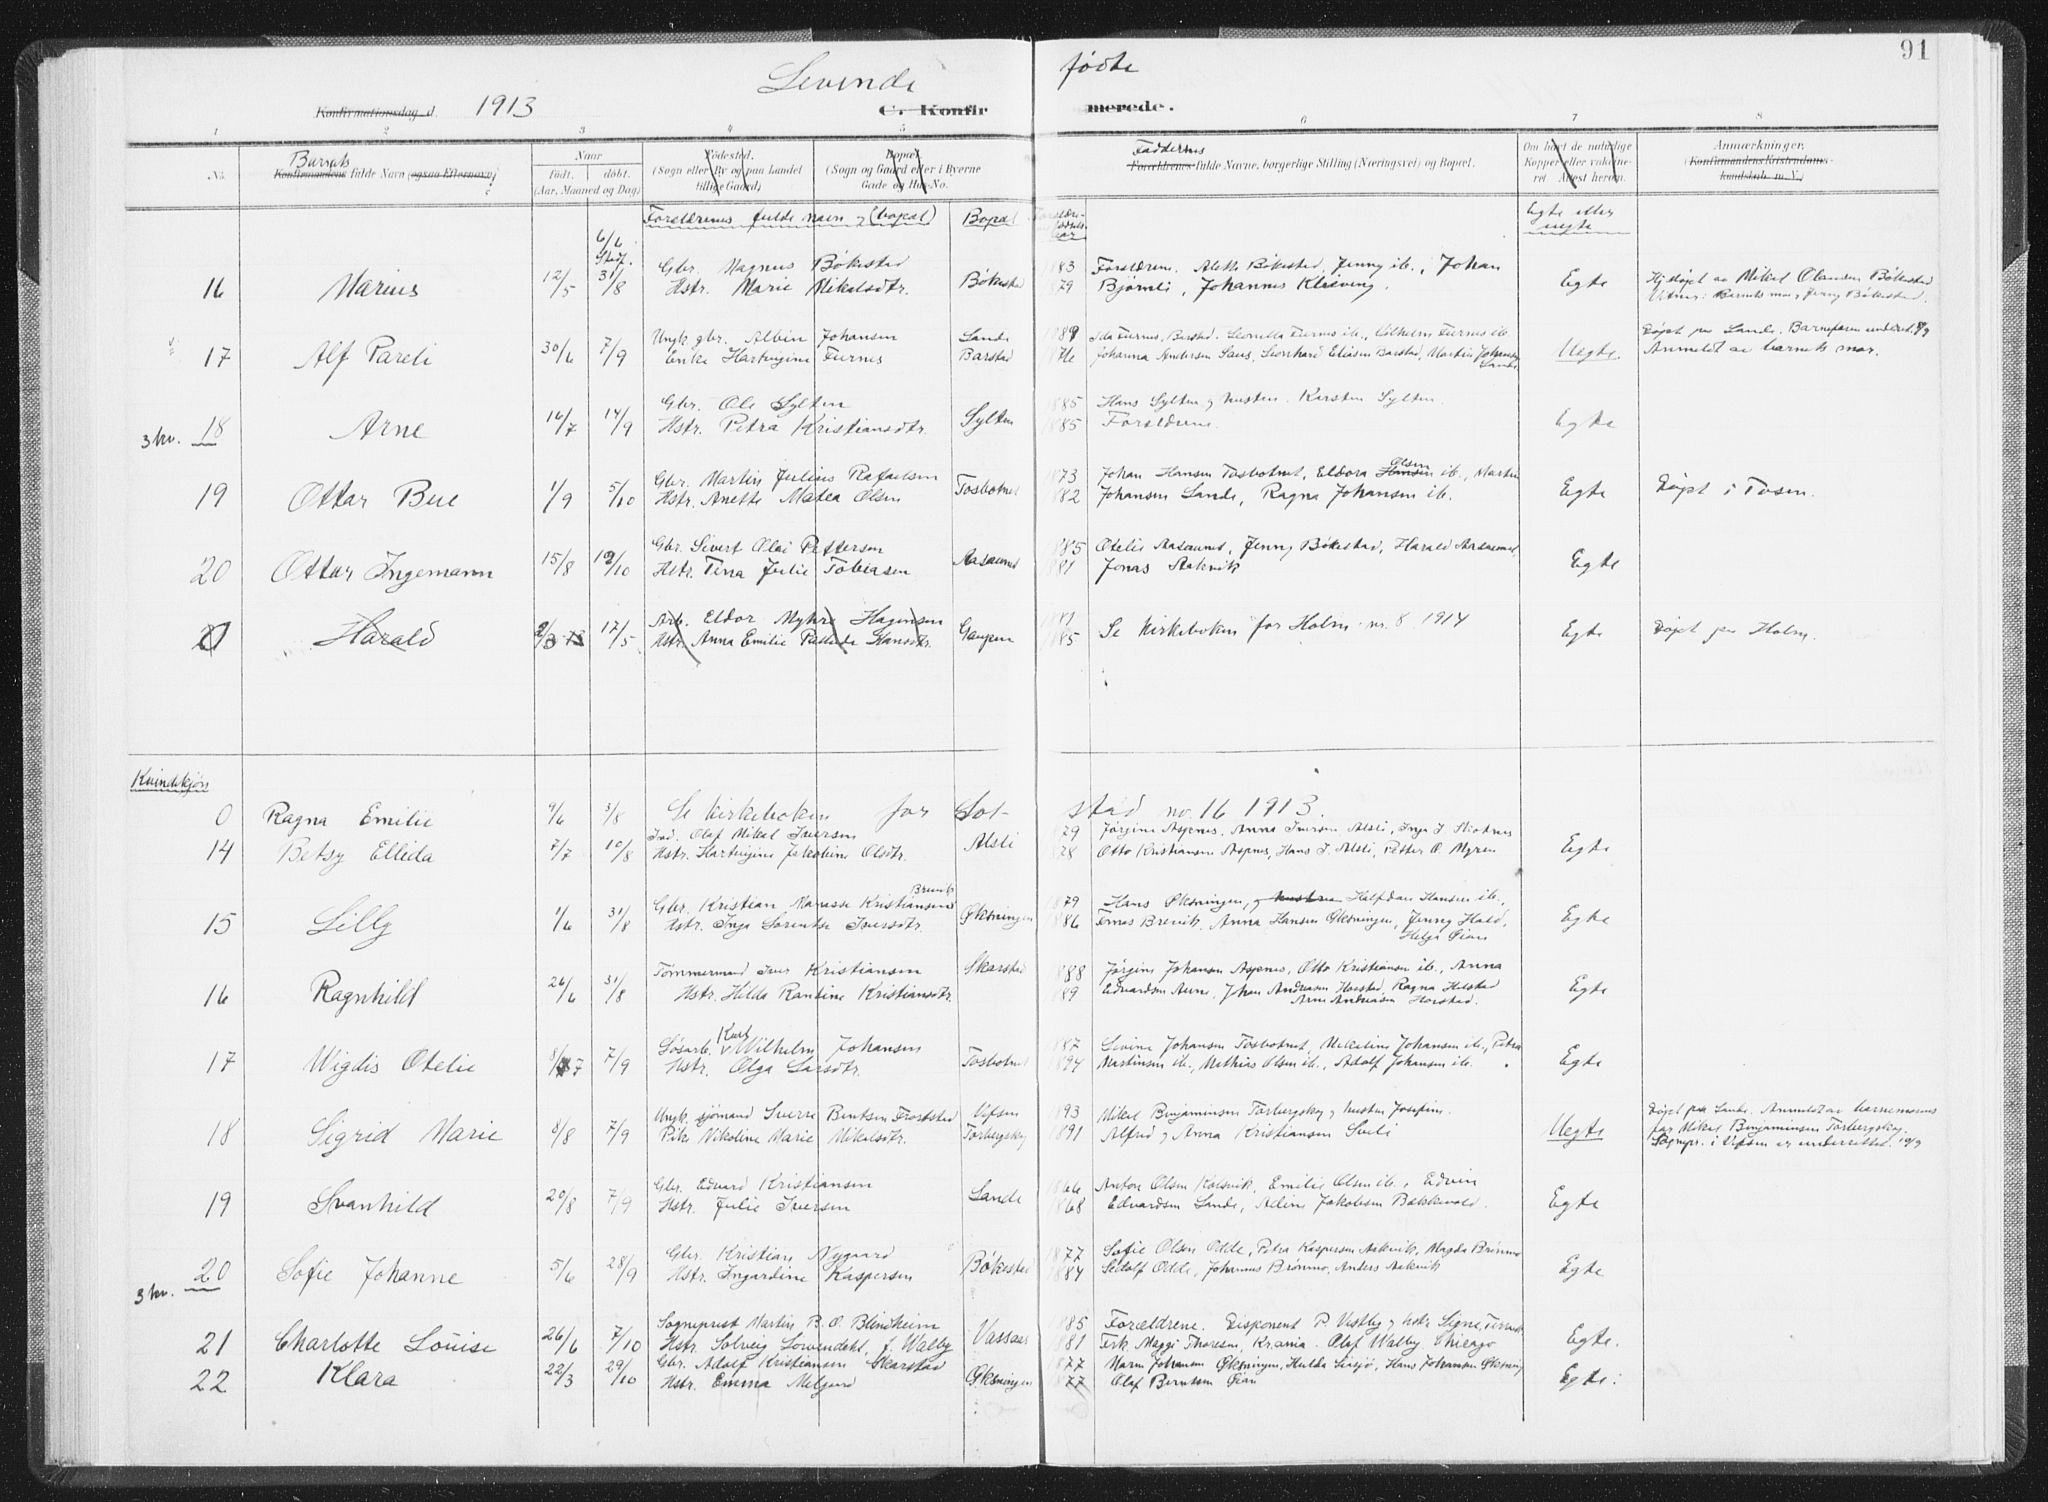 91
Levende fødte
Konfirmationsdag d. 1913 C. Konfir merede.
1 2 3 4 5 6 7 8
No. Barnets Konfirmandens fulde Navn (ogsaa Efternavn)
Naar født. døbt. (Aar, Maaned og Dag)
Fødested. (Sogn eller By og paa Landet tillige Gaard)
Bopæl. (Sogn og Gaard eller i Byerne Gade og Hus-No.
Faddernes Forældrenes fulde Navne, borgerlige Stilling (Næringsvei) og Bopæl.
Om havt de naturlige Kopper eller vaksineret Attest herom.
Anmærkninger. (Konfirmandens Kristendomskundskab m. V.)
Forældrenes fulde navn og (bopæl) Bopæl Egte eller uegte
6/6 Stadf.
16 Marius 12/5 31/8 Gbr. Magnus Bøkestad Bøkestad 83 Forældrene. Aleth Bøkestad, Jenny ib., Johan Egte Hj.døpt av Mikal Olausen Bøkestad
Hstr. Marie Mikalsdtr. 879 Bjørnli, Johannes Kleiving. Vitner: Barnets mor, Jenny Bøkestad.
17 Alf Pareli 30/6 7/9 Ungk. gbr. Albin Johansen Lande Ida Furnes, Barstad. Leonella Furnes ib., Vilhelm Furnes ib. Uegte. Døpt paa Lande. Barnefaren underret.
Enke Hartvigine Furnes Barstad Johanna Andersen Saus, Leonhard Eliasen Barstad, Martin Johansen Lande Anmeldt av barnets mor.
3 kv. 18 Arne 16/7 14/9 Gbr. Ole Sylten Sylten 1885 Hans Sylten og hustru. Karsten Sylten. Egte
Hstr. Petra Kristiansdtr. 1885 Forældrene.
19 Ottar Bue 1/9 5/10 Gbr. Martin Julius Rafaelsen Tosbotnet 1873 Johan Hansen Tosbotnet, Eldora Hansen Olsen ib., Martin Egte Døpt i Tosen.
Hstr. Anette Matea Olsen 1882 Johansen Lande, Ragna Johansen ib.
20 Ottar Ingemann 15/8 12/10 Gbr. Sivert Olai Pettersen Aasaunet 1885 Otelie Aasaunet, Jenny Bøkestad, Harald Aasaunet, Egte
Hstr. Tina Julie Tobiasen 1881 Jonas Aakvik
21 Harald 2/3 13 17/5 Arb. Eldor Myhre Hagensen Gaupen 1885 Se Kirkeboken for Holm nr. 8 1914 Egte Døpt paa Holm.
Hstr. Anna Emilie Hansdtr.
Kvindekjøn
0 Ragna Emilie 9/6 3/8 Se Kirkeboken for Solstad no. 16 1913.
14 Betsy Ellida 7/7 10/8 Ind. Olaf Mikal Iversen Alsli 79 Jørgine Aspenes. Anna Iversen Alsli, Inga J. Egte
Hstr. Hartvigine Jakobine Olsdtr. 78 Otto Kristiansen Aspnes, Hans J. Alsli, Petter O. Myren
15 Lilly 1/6 31/8 Gbr. Kristian Manasse Kristiansen Brenvk Øksningen 1879 Hans Øksningen, og hustru Halfdan Hansen ib., Egte
Hstr. Inga Sorentse Iversdtr. 1886 Brevik, Anna Hansen Øksningen, Jenny Hald, Helga Øian
16 Ragnhild 26/6 31/8 Tømmermand Iver Kristiansen Skarstad 1888 Jørgine Johansen Aspenes, Otto Kristiansen ib., Anna Egte
Hstr. Hilda Rantine Kristiansdtr. 89 Edvardsen Aune, Johan Andreasen Horstad, Ragna Horstad Arne Andreasen Horstad.
17 Wigdis Otelie 8/7 7/9 Løsarb. Karl Wilhelm Johansen Tosbotnet 1887 Lovine Johansen Tosbotnet, Nikoline Johansen ib., Petra Egte
Hstr. Olga Larsdtr. 1894 Martinsen ib., Mathias Olsen ib., Adolf Johansen ib.
18 Sigrid Marie 8/8 7/9 Ungk. sjømand Sverre Bentsen Vefsen 1893 Mikal Binjaminsen Torbergskog og hustru Josefine. Uegte Døpt paa Lande. Anmeldt av barnemorens
Pike Nikoline Marie Mikalsdtr. Torbergskog 1891 Alfred og Anna Kristiansen Sveli far Mikal Binjaminsen Torbergskog.
Sognepr. i Vefsen er underrettet.
19 Svanhild 20/8 7/9 Gbr. Edvard Kristiansen Lande 1866 Anton Olsen Kolsvik, Emilie Olsen ib., Edvin Egte
Hstr. Julie Iversen 1868 Edvardsen Lande, Aline Jakobsen Bakkevold.
20 Sofie Johanne 5/6 28/9 Gbr. Kristian Nygaard Bøkestad 1877 Sofie Olsen Odde, Petra Kaspersen Aakvik, Magda Brønmo Egte
3 kv. Hstr. Ingardine Kaspersen 1884 Setolf Odde, Johannes Brønmo, Anders Aakvik
21 Charlotte Louise 26/6 7/10 Sogneprest Martin B. O. Blindheim Vassaas 1885 Forældrene. Disponent P. Vestby og hstr. Signe, Egte.
Hstr. Solveig Løvendahl, f. Walby 1881 Frk. Maggi Thoresen, Krania. Olaf Walby Chicago
22 Klara 22/3 29/10 Gbr. Adolf Kristiansen Skarstad Øksningen 1877 Maren Johansen Øksningen, Hulda Leisjø, Hans Johansen Øksning Egte.
Hstr. Emma Melgaard 77 Olaf Berntsen Øian